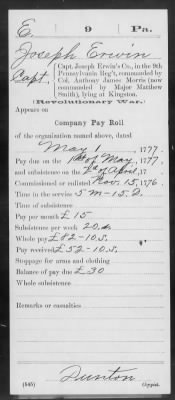 E. 9 Pa.
Joseph Erwin
Capt., Capt. Joseph Erwin's Co., in the 9th
Pennsylvania Reg't, commanded by
Col. Anthony James Morris (now
commanded by Major Matthew
Smith), lying at Kingston.
(Revolutionary War.)
Appears on
Company Pay Roll
of the organization named above, dated
May 1, 1777.
Pay due on the 1st of May, 1777.
and subsistence on the 1st of April, 17
Commissioned or enlisted Nov. 15, 1776.
Time in the service 5 m - 15 d
Time of subsistence
Pay per month £15
Subsistence per week 20 s.
Whole pay £82-10 s.
Pay received £52-10 s.
Stoppage for arms and clothing
Balance of pay due £30
Whole subsistence
Remarks or casualties
Dunton
(545) Copyist.